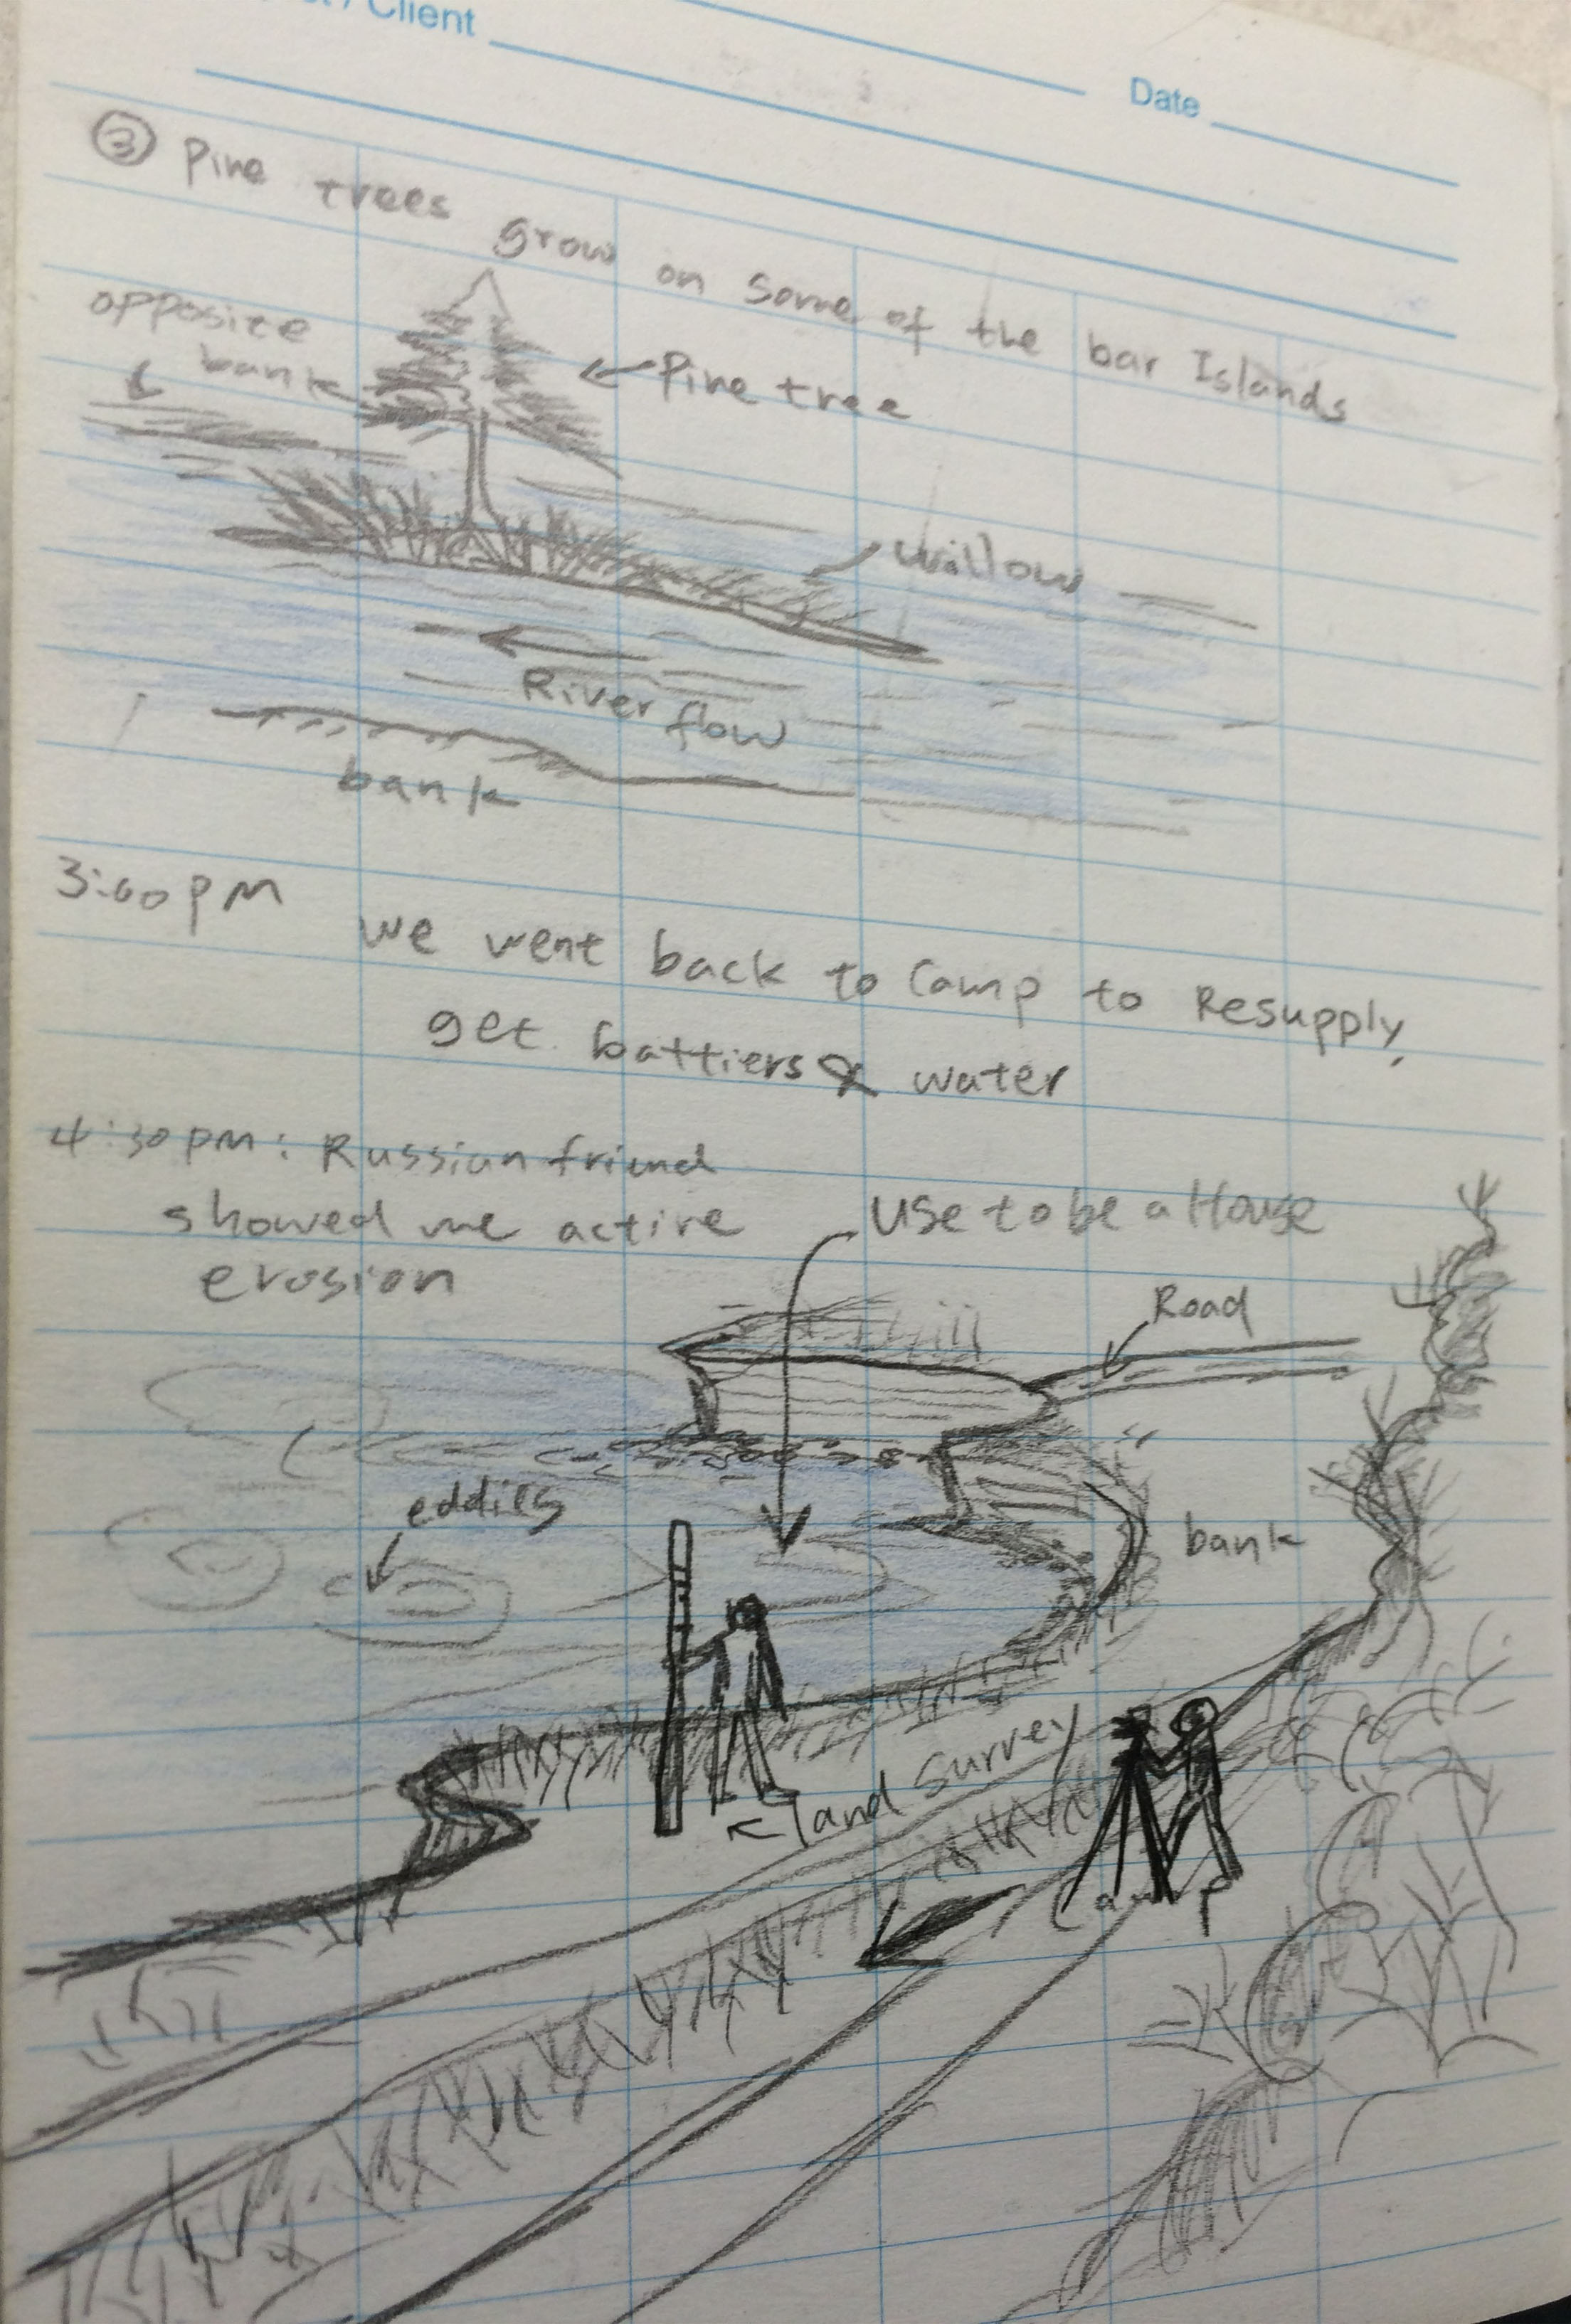 / Client
Date
③ Pine trees grow on Some of the bar Islands
opposite
bank
Pine tree
willow
River flow
bank
3:00pm
we went back to Camp to Resupply,
get battiers & water
4:30pm: Russian friend
showed me active
erosion
Use to be a House
Road
eddies
bank
land survey
Camp